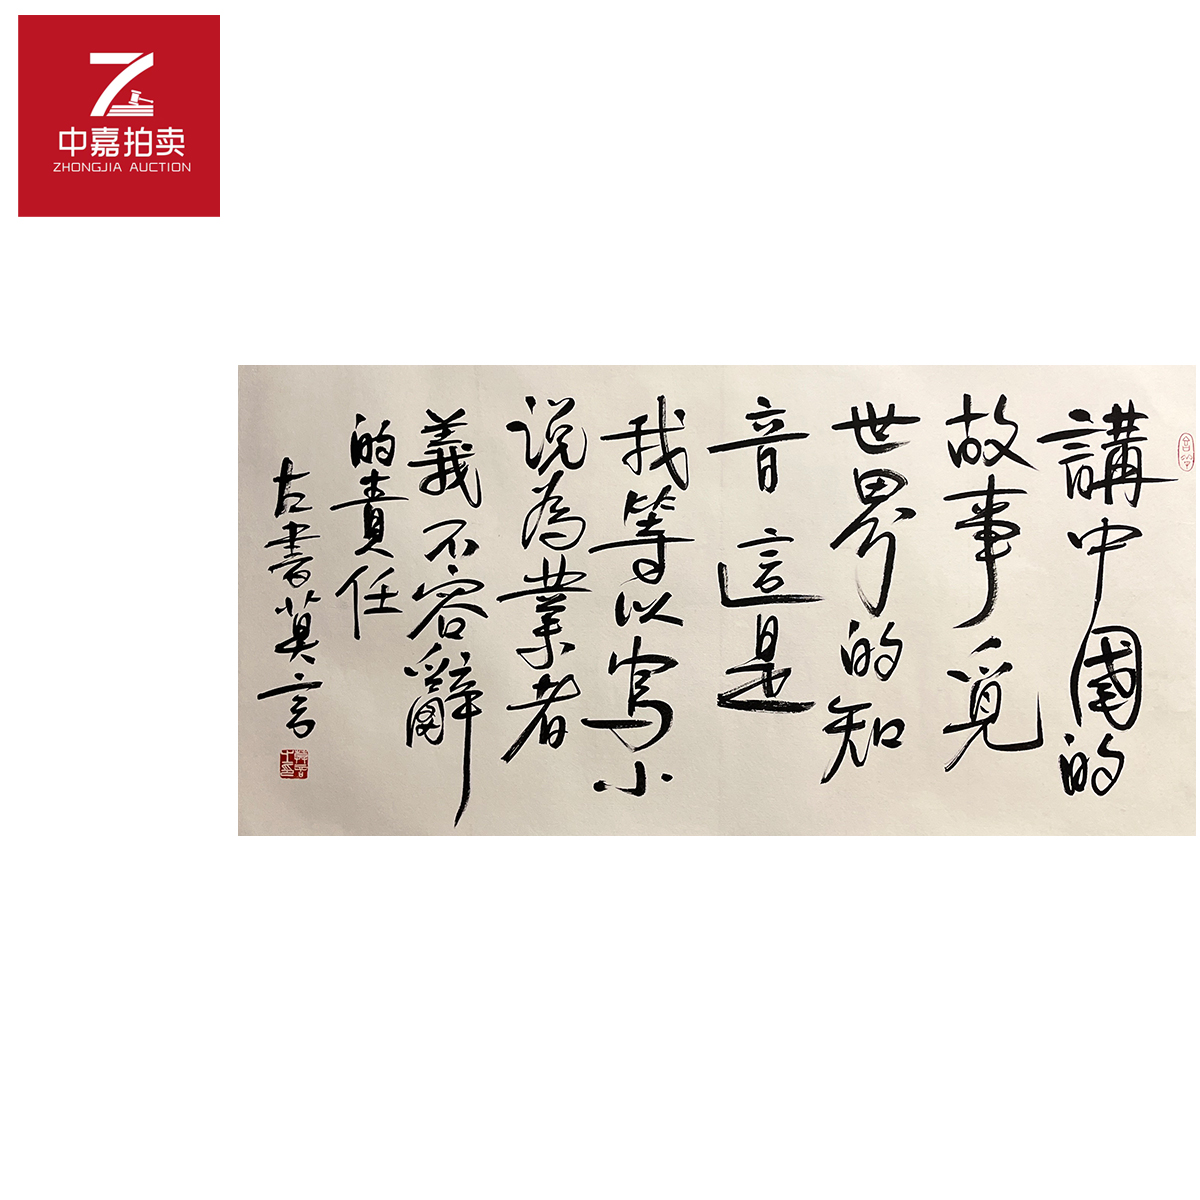 中嘉拍卖
ZHONGJIA AUCTION
講中國的
故事覓
世界的知
音這是
我等以寫小
说為業者
義不容辭
的責任
左書莫言